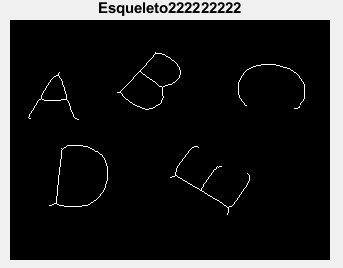 Esqueleto222222222
A B C
D E